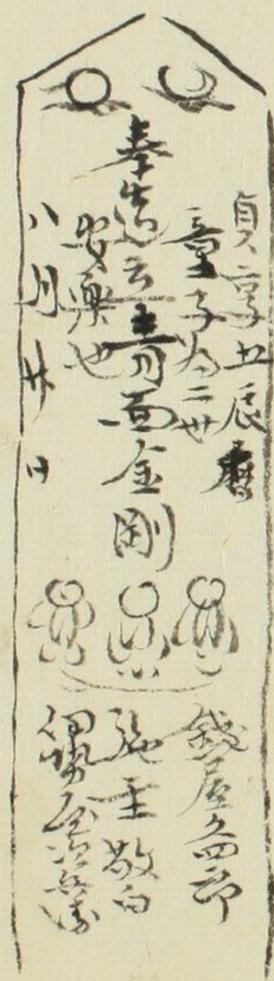 貞享五辰暦
童子為二世
奉造立青面金剛
安楽也
八月廿日
銭屋久四郎
施主敬白
伊勢屋次兵衛